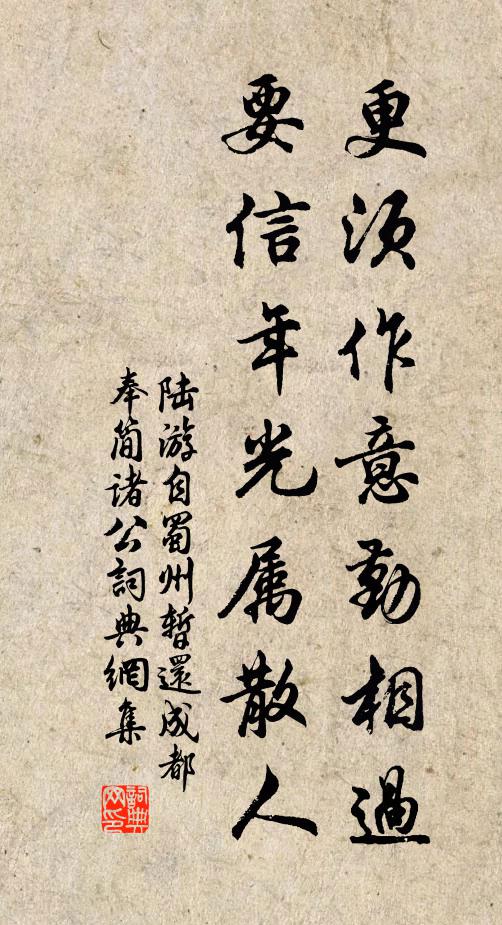 更须作意勤相過
要信年光属散人
陆游自蜀州暫還成都
奉简诸公詞典網集
詞典网印